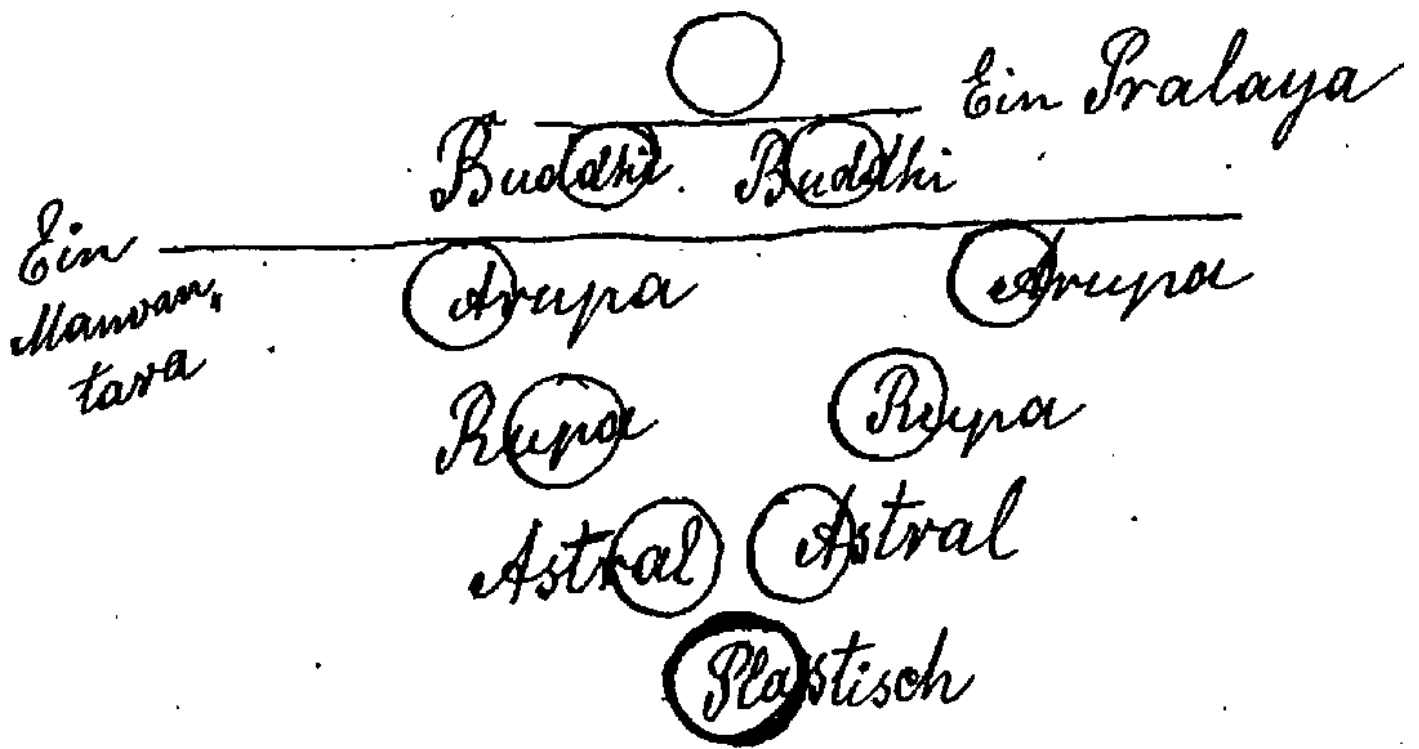 Ein Pralaya
Buddhi. Buddhi
Ein
Manvan„
tara
Arupa Arupa
Rupa Rupa
Astral Astral
Plastisch